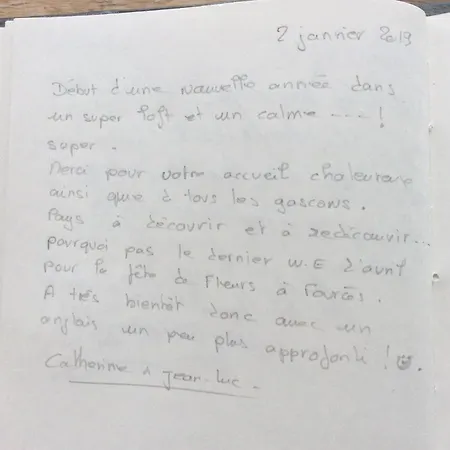 2 janvier 2019
Début d'une nouvelle année dans
un super loft et un calme ---- !
super.
Merci pour votre accueil chaleureux
ainsi que à tous les gascons.
Pays à découvrir et à redécouvrir...
pourquoi pas le dernier W.E d'avril
pour la fête de Fleurs à Fourcès.
A très bientôt donc avec un
anglais un peu plus approfondi !
Catherine & Jean-Luc.